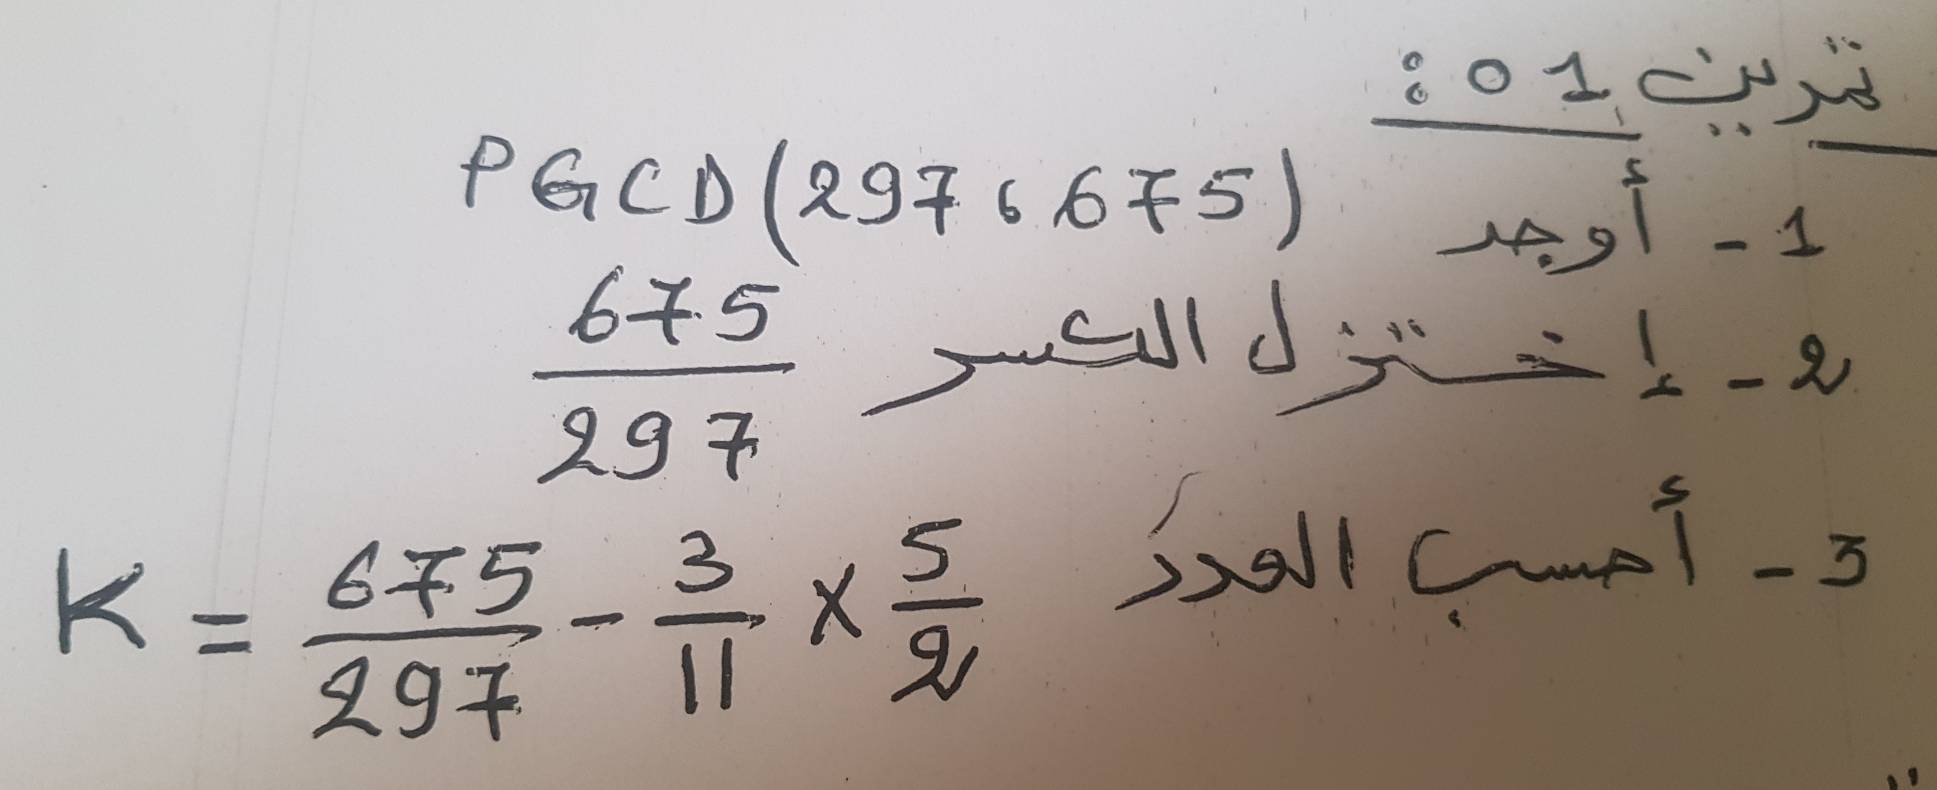 تمرين 01:
1 - أوجد PGCD(297، 675)
2 - إختزل الكسر 675/297
3 - أحسب العدد K = 675/297 - 3/11 × 5/2